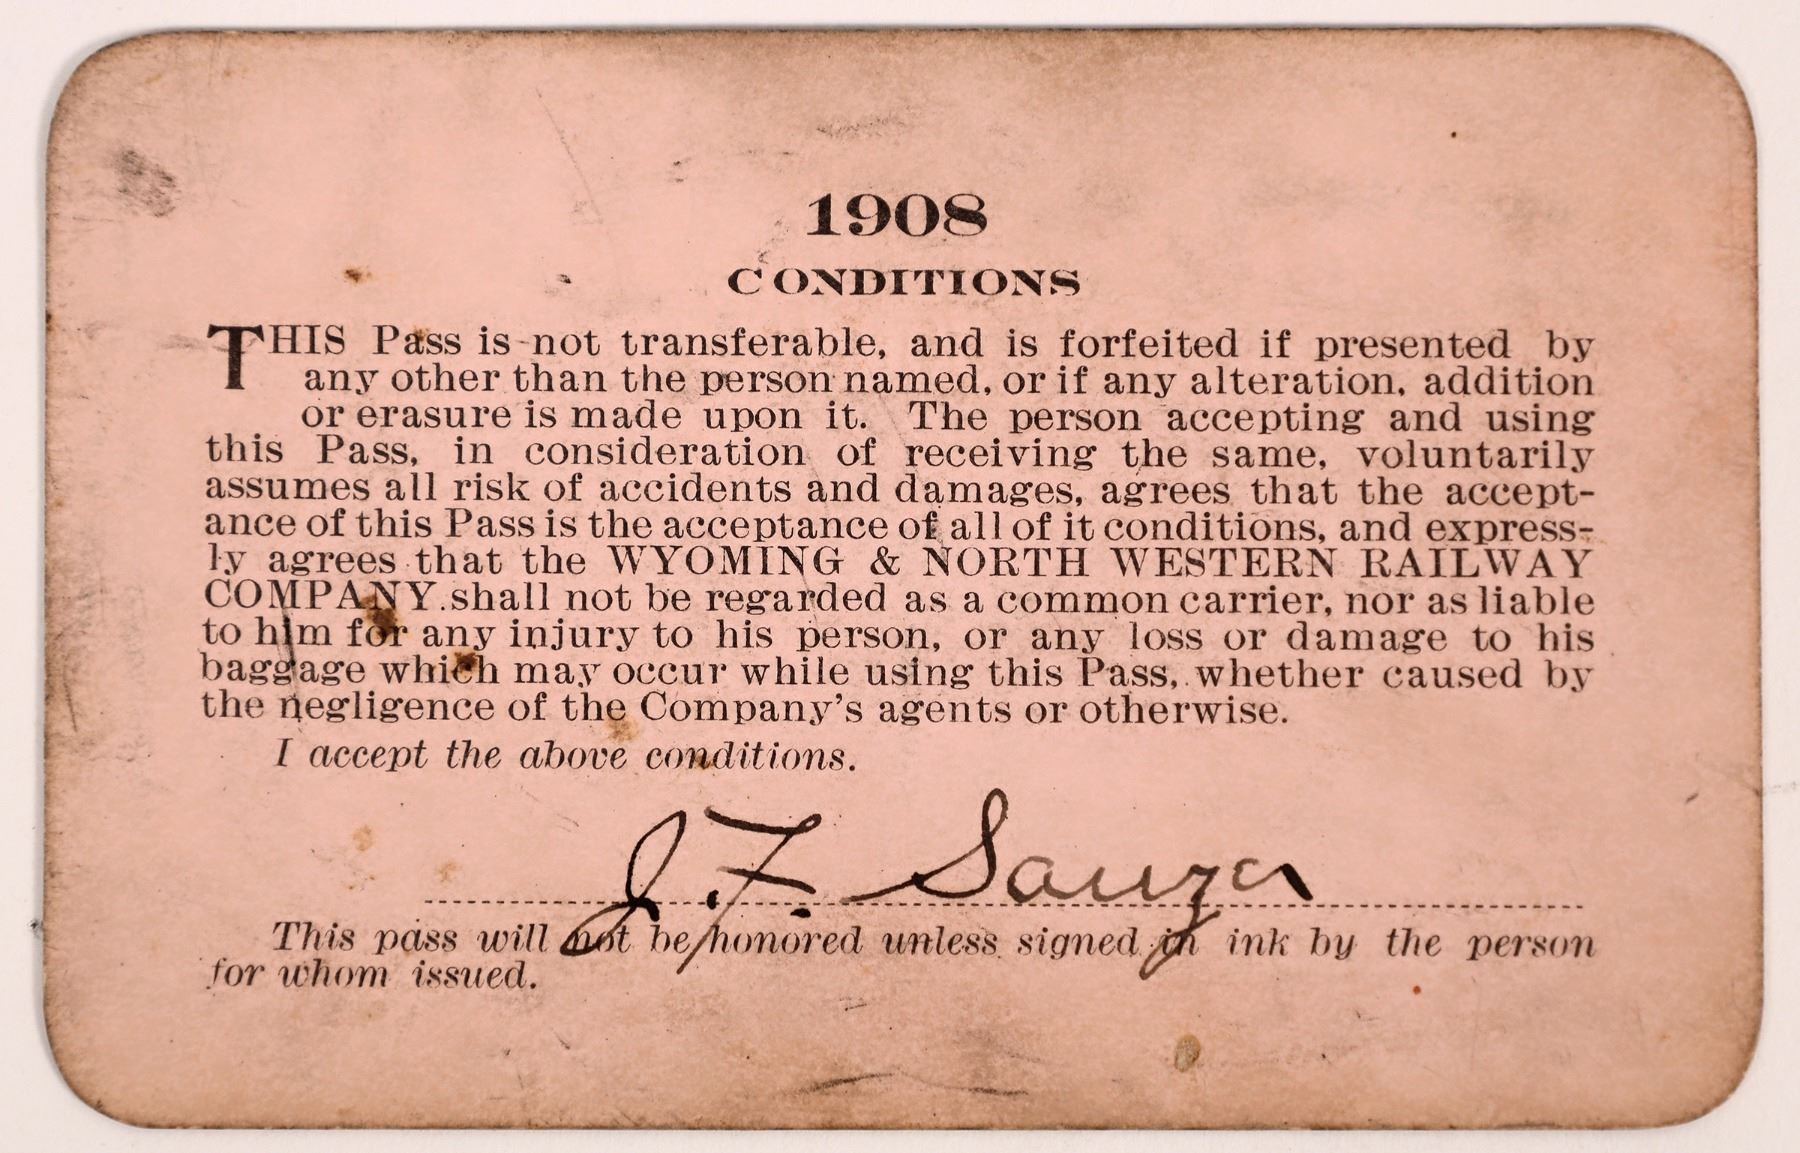 1908
CONDITIONS
THIS Pass is not transferable, and is forfeited if presented by
any other than the person named, or if any alteration, addition
or erasure is made upon it. The person accepting and using
this Pass, in consideration of receiving the same, voluntarily
assumes all risk of accidents and damages, agrees that the accept-
ance of this Pass is the acceptance of all of it conditions, and express-
ly agrees that the WYOMING & NORTH WESTERN RAILWAY
COMPANY shall not be regarded as a common carrier, nor as liable
to him for any injury to his person, or any loss or damage to his
baggage which may occur while using this Pass, whether caused by
the negligence of the Company's agents or otherwise.
I accept the above conditions.
J. F.
This pass will not be honored unless signed in ink by the person
for whom issued.